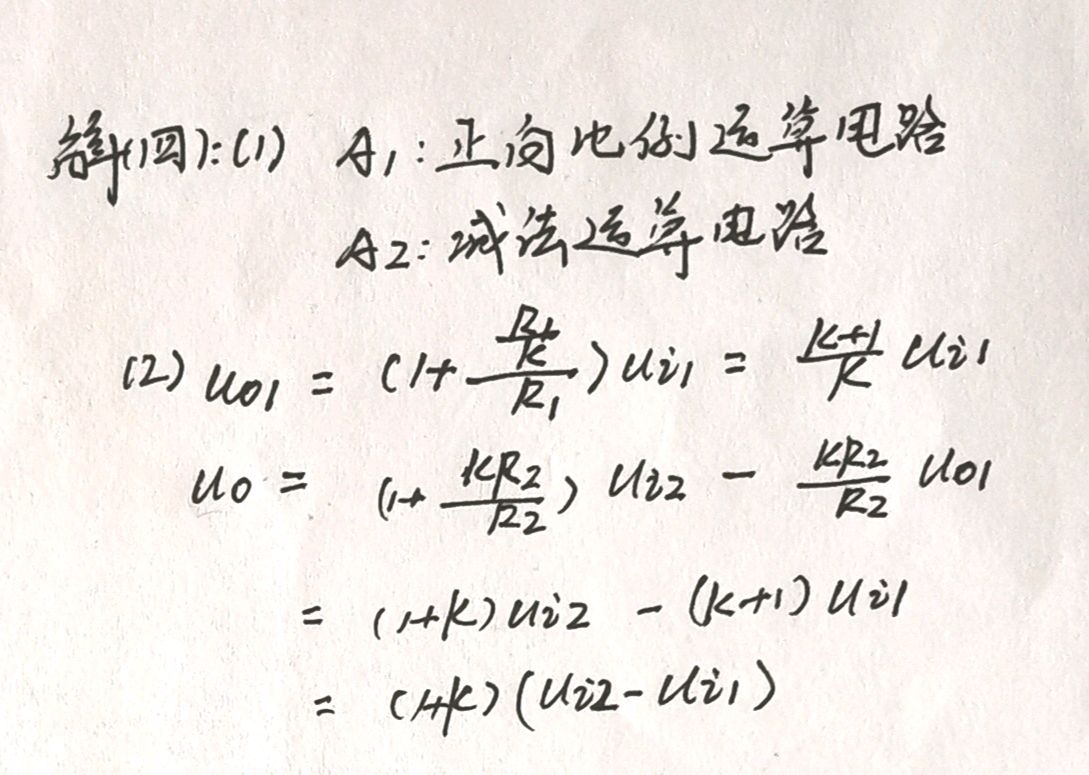 解(四):(1) A1:正向比例运算电路
A2:减法运算电路
(2) uo1 = (1+ (R1/K)/R1) ui1 = (K+1)/K ui1
uo = (1+ KR2/R2) ui2 - KR2/R2 uo1
= (1+K) ui2 - (K+1) ui1
= (1+K) (ui2-ui1)